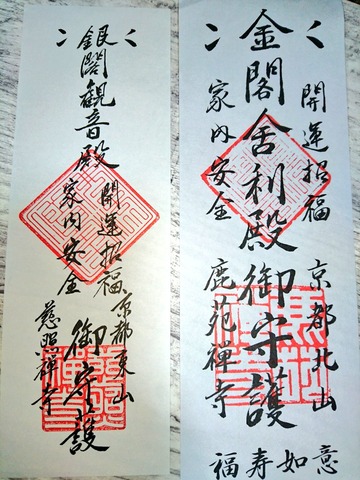 銀閣観音殿 御守護
開運招福 京都東山
家内安全 慈照禅寺
開運招福 京都北山
金閣舎利殿 御守護
家内安全 鹿苑禅寺
福寿如意